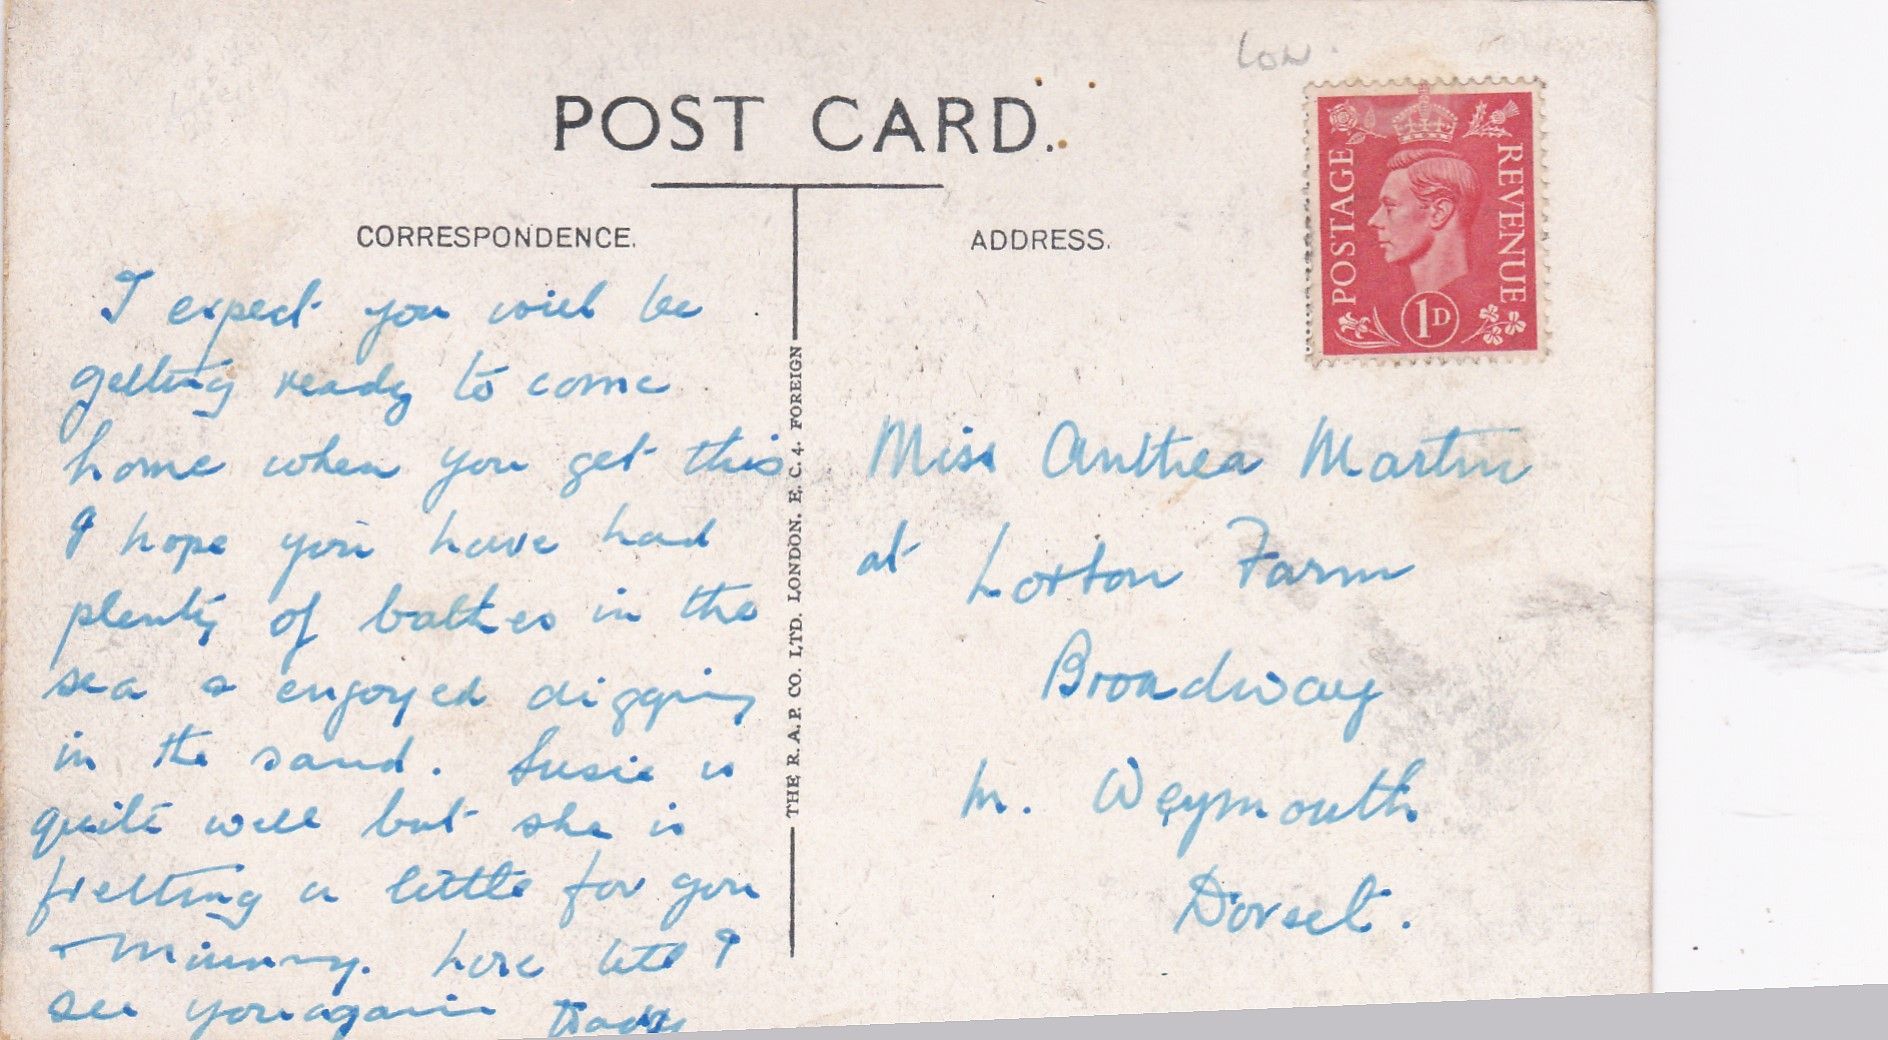 LON
POST CARD.
CORRESPONDENCE.
ADDRESS.
POSTAGE
REVENUE
1D
I expect you will be
getting ready to come
home when you get this
I hope you have had
plenty of bathes in the
sea & enjoyed digging
in the sand. Susie is
quite well but she is
fretting a little for you
+ Mummy. Love till I
see you again Daddy
THE R. A. P. CO. LTD. LONDON. E. C. 4. FOREIGN
Miss Anthea Martin
at Lorton Farm
Broadway
Nr. Weymouth
Dorset.